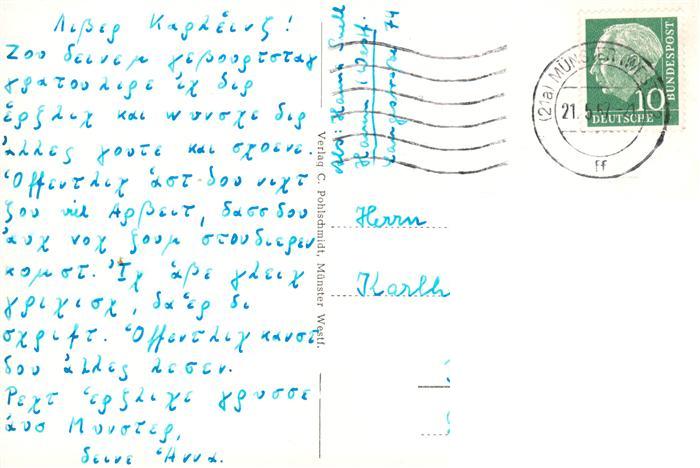 Λιβερ Καρλἑινζ!
Ζου δεινεμ γεβουρτσταγ
γρατουλιρε ἰχ διρ
ἑρζλιχ και wυνσχε διρ
ἀλλες γουτε και σχοενε.
Ὁffεντλιχ ἁστ δου νιχτ
ζου νιλ Αρβειτ, δασσ δου
ἀυχ νοχ ζουμ στουδιερεν
κομστ. Ἰχ ἁβε γλειχ
γριχισχ, δα ἑρ δι
σχριfτ. Ὁffεντλιχ κανστ
δου ἀλλες λεσεν.
Ρεχτ ἑρζλιχε γρυσσε
ἀυσ Μυνστερ,
δεινε Ἁννα.
Verlag C. Pohlschmidt, Münster Westf.
Abs: Hanna
Hamm (Westf.
Langestraße 74
(21a) MÜNSTER (WESTF)
21.5.57
ff
10
DEUTSCHE BUNDESPOST
Herrn
Karlh